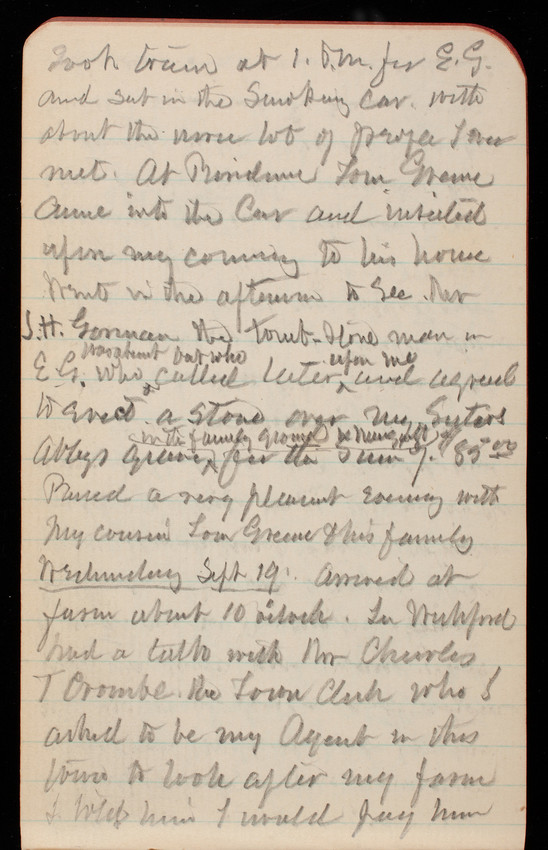 Took train at 1. P.M. for E.G.
and sat in the Smoking Car. with
about the worse lot of people I ever
met. At Providence Tom Greene
came into the Car and insisted
upon my coming to his house
Went in the afternoon to see Mr
J.H. Gorman the tomb-stone man in
was absent but who upon me
E G. who called later and agreed
to erect a stone over my Sisters
in the family ground
Abbys grave for the Sum of $85.00
Passed a very pleasant Evening with
my cousin Tom Greene & his family
Wednesday Sept 19. Arrived at
farm about 10 o'clock. In Wickford
had a talk with Mr Charles
T Crombe the Town Clerk who I
asked to be my Agent in this
town to look after my farm
I told him I would pay him